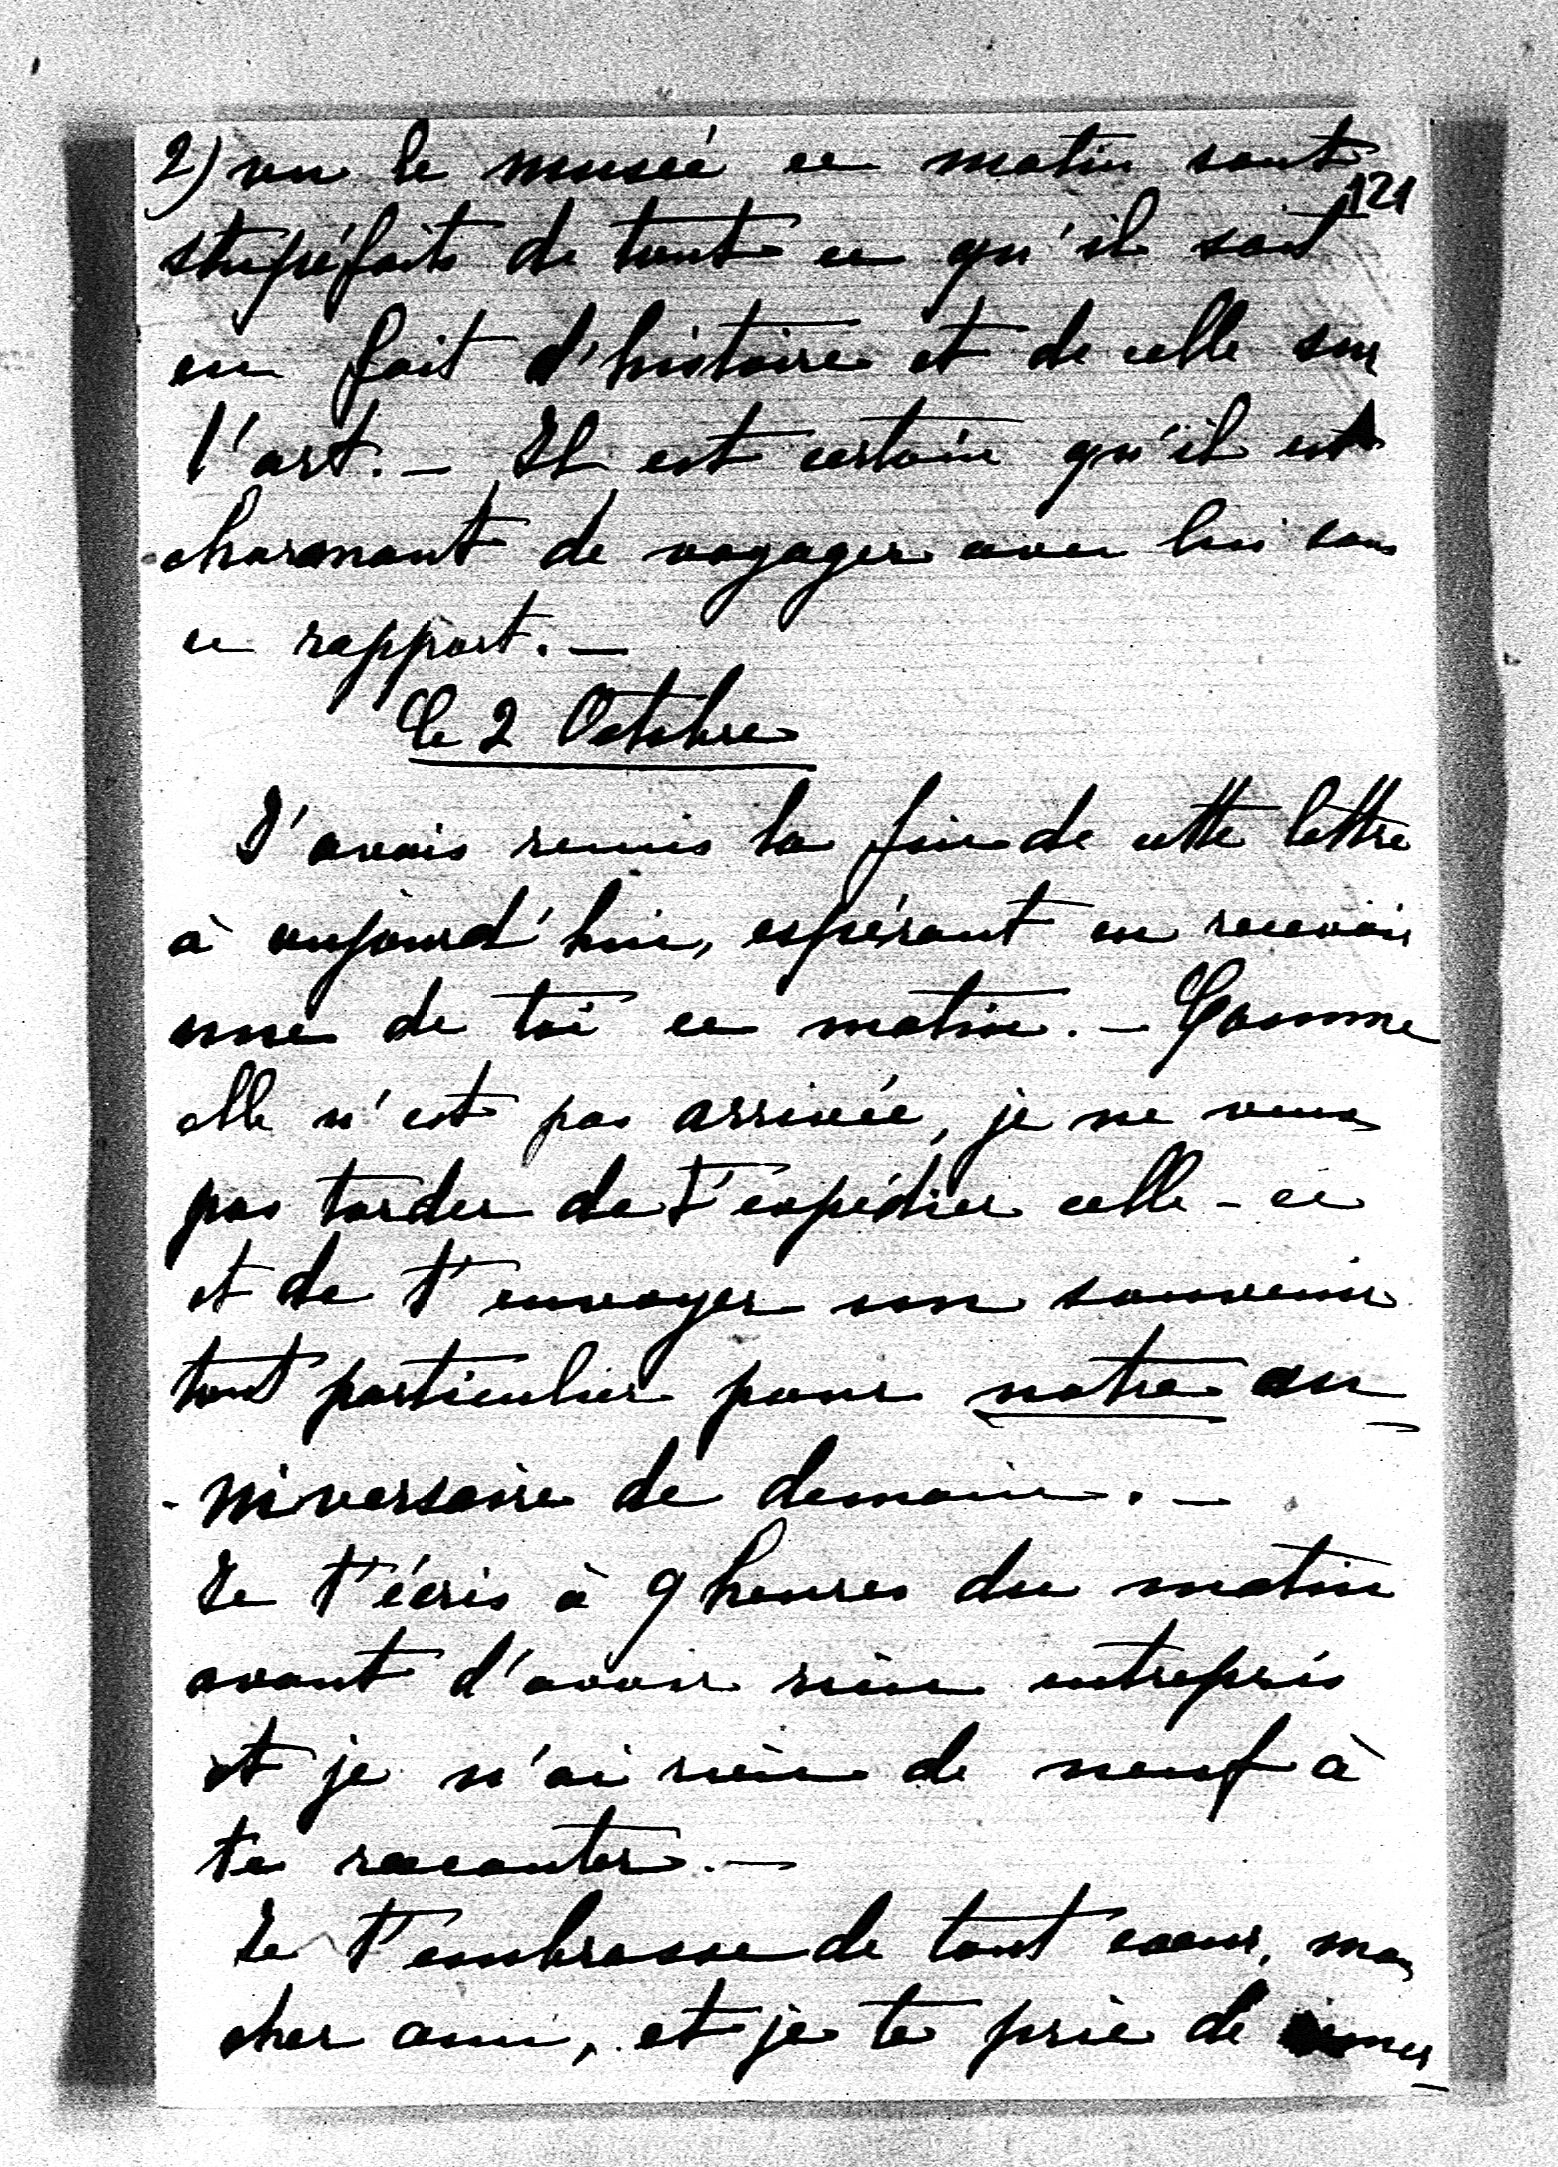 2) vu le musée ce matin sont
121
stupéfaits de tout ce qu'il sait
en fait d'histoire et de celle sur
l'art. — Il est certain qu'il est
charmant de voyager avec lui sous
ce rapport. —
Le 2 Octobre
J'avais remis la fin de cette lettre
à aujourd'hui, espérant en recevoir
une de toi ce matin. — Comme
elle n'est pas arrivée, je ne veux
pas tarder de t'expédier celle-ci
et de t'envoyer un souvenir
tout particulier pour notre an-
-niversaire de demain. —
Je t'écris à 9 heures du matin
avant d'avoir rien entrepris
et je n'ai rien de neuf à
te raconter. —
Je t'embrasse de tout cœur, mon
cher ami, et je te prie de